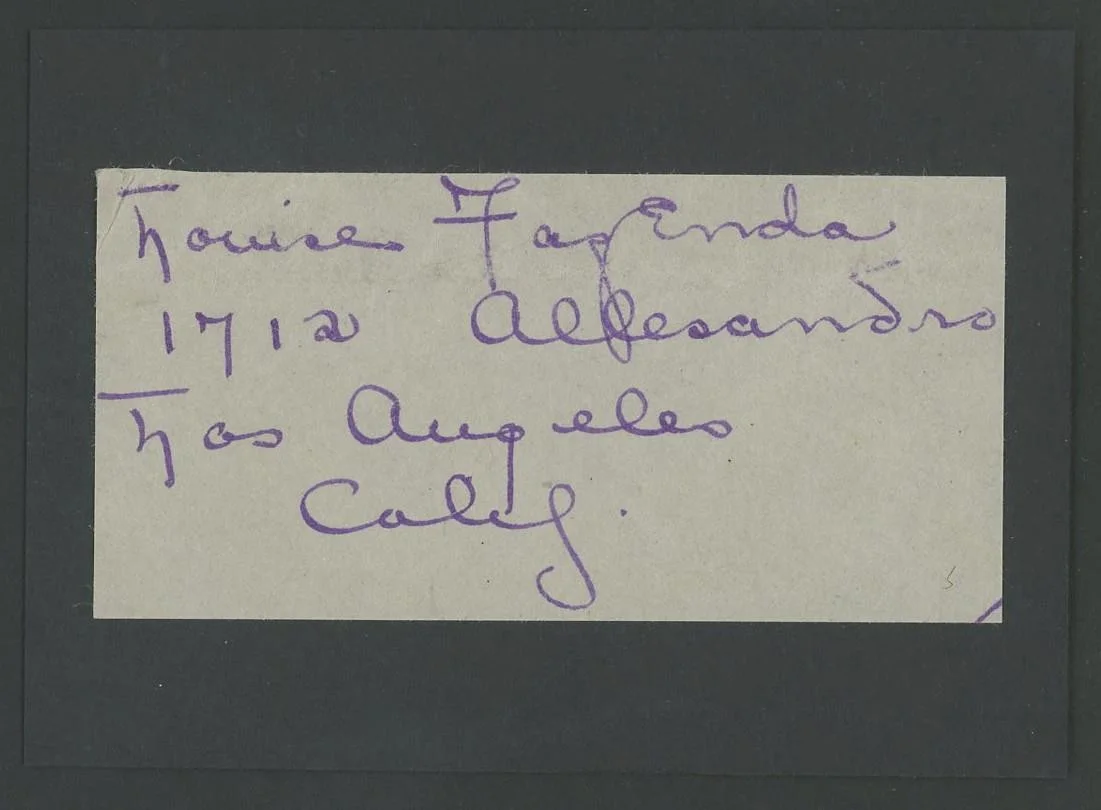 Louise Fazenda
1712 Allesandro
Los Angeles
Calif.